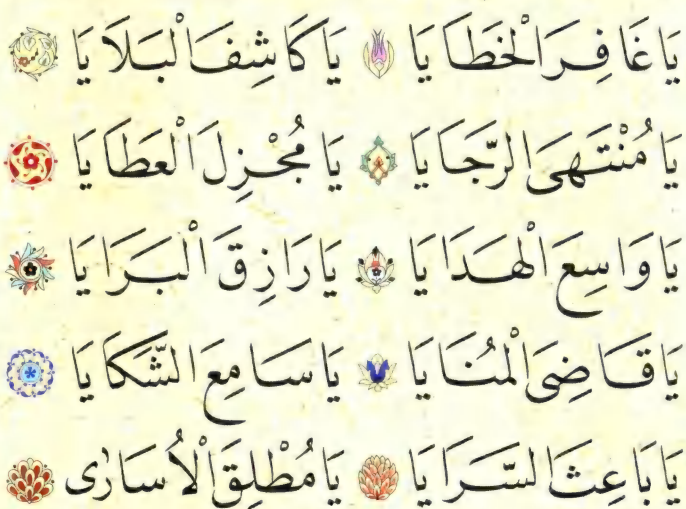 يَا غَافِرَ الْخَطَايَا يَا كَاشِفَ الْبَلَايَا
يَا مُنْتَهَى الرَّجَايَا يَا مُجْزِلَ الْعَطَايَا
يَا وَاسِعَ الْهَدَايَا يَا رَازِقَ الْبَرَايَا
يَا قَاضِيَ الْمُنَايَا يَا سَامِعَ الشَّكَايَا
يَا بَاعِثَ السَّرَايَا يَا مُطْلِقَ الْاُسَارٰى